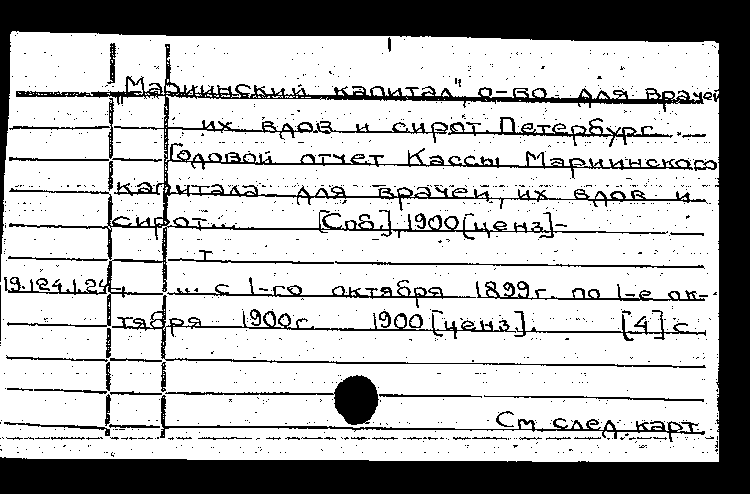 "Мариинский капитал", о-во для врачей
их вдов и сирот. Петербург.
Годовой отчет Кассы Мариинского
капитала для врачей, их вдов и
сирот... [Спб.], 1900 [ценз]-
т
19.124.1.24 ... с 1-го октября 1899г. по 1-е ок-
тября 1900г. 1900 [ценз]. [4] с.
См. след. карт.